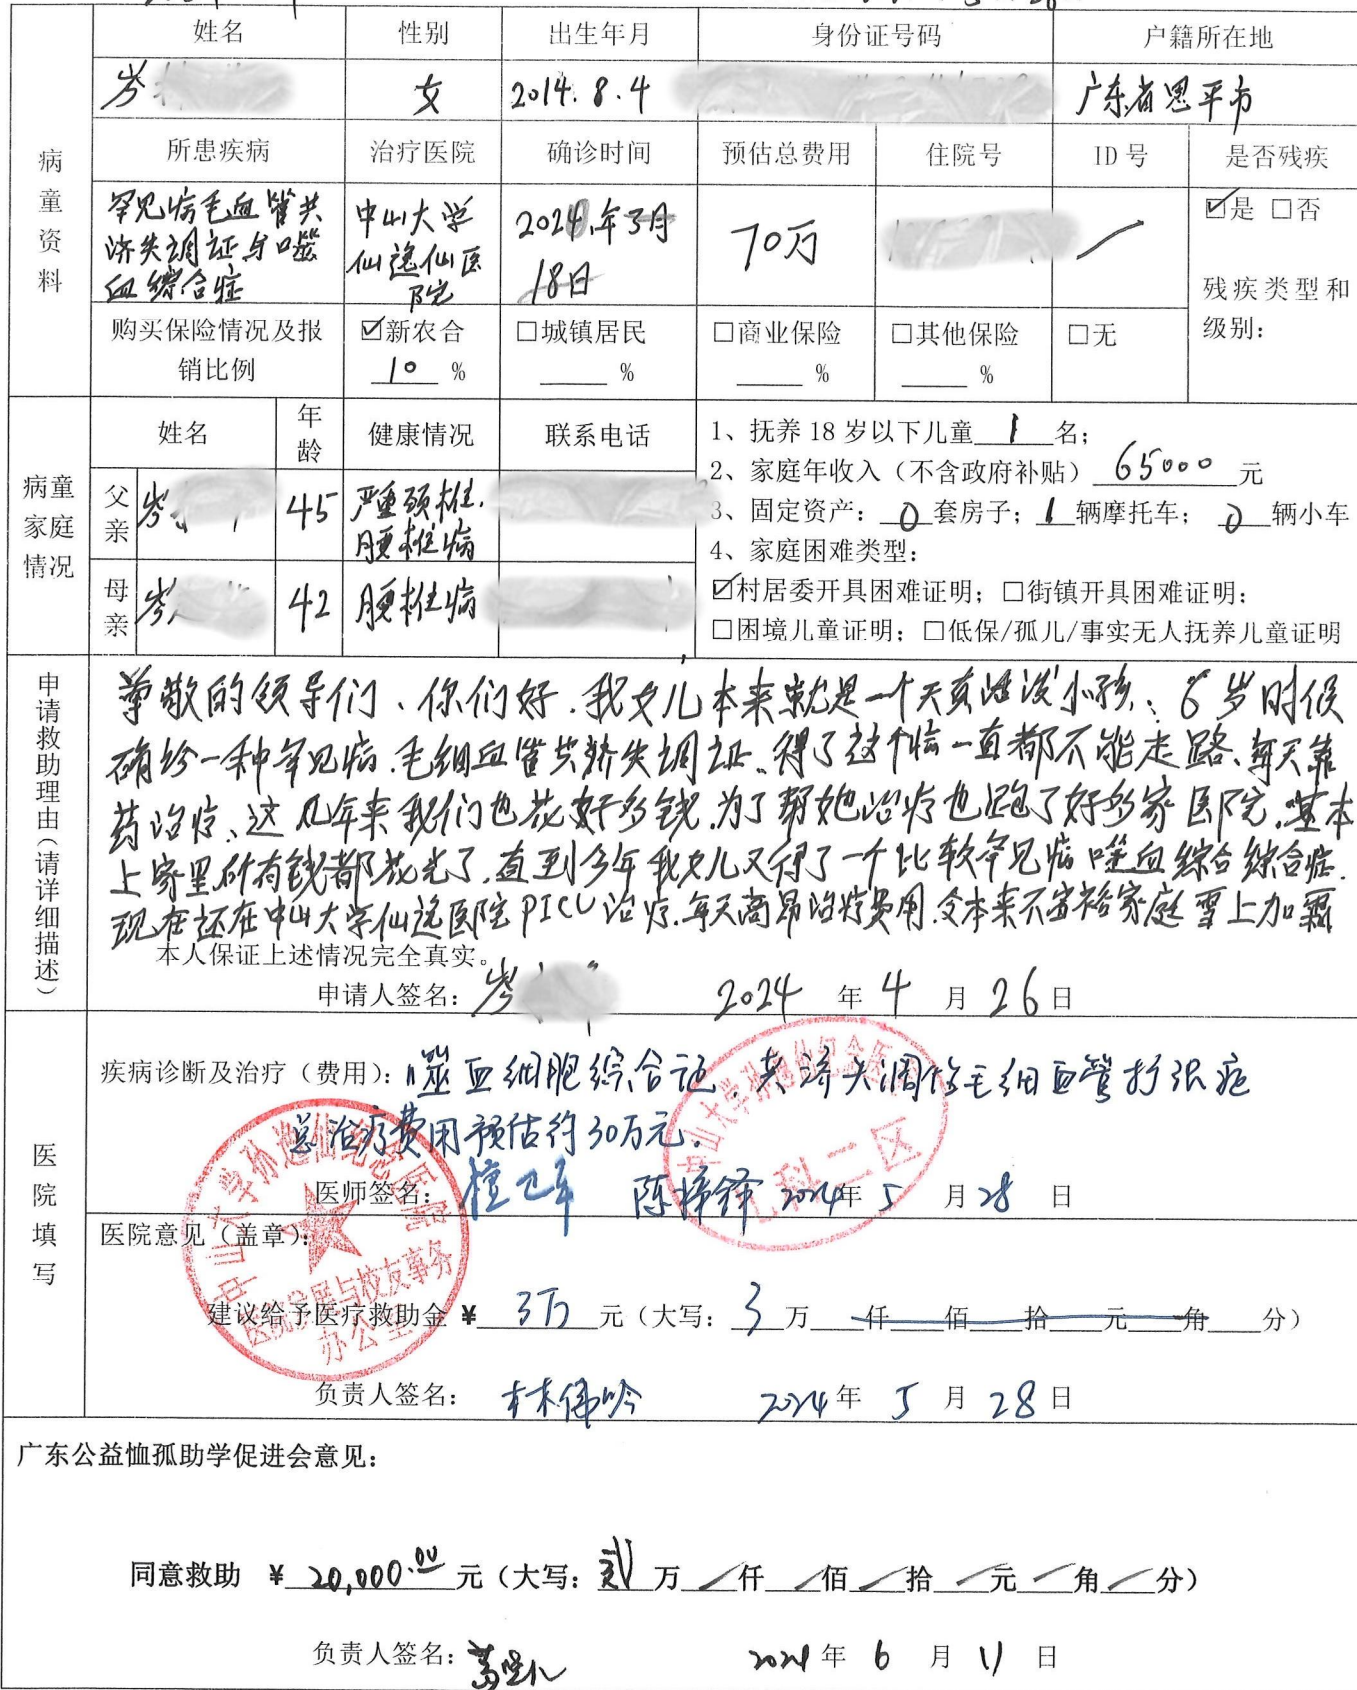 姓名 性别 出生年月 身份证号码 户籍所在地
岑 女 2014.8.4 广东省恩平市
病童资料
所患疾病 治疗医院 确诊时间 预估总费用 住院号 ID号 是否残疾
罕见病毛血管共 中山大学 2024年3月 70万 ☑是 □否
济失调证与口噬 仙逸仙医 18日
血综合症 院
残疾类型和
级别：
购买保险情况及报 ☑新农合 □城镇居民 □商业保险 □其他保险 □无
销比例 10 % % % %
病童家庭情况
姓名 年龄 健康情况 联系电话
父亲 岑 45 严重颈椎.
腰椎病
母亲 岑 42 腰椎病
1、抚养18岁以下儿童 1 名；
2、家庭年收入（不含政府补贴） 65000 元
3、固定资产： 0 套房子； 1 辆摩托车； 0 辆小车
4、家庭困难类型：
☑村居委开具困难证明；□街镇开具困难证明；
□困境儿童证明；□低保/孤儿/事实无人抚养儿童证明
申请救助理由（请详细描述）
尊敬的领导们、你们好.我女儿本来就是一个天真活泼小孩、6岁时候
确诊一种罕见病.毛细血管共济失调证、得了这个病一直都不能走路、每天靠
药治疗、这几年来我们也花好多钱.为了帮她治疗也跑了好多家医院.基本
上家里所有钱都花光了.直到今年我女儿又得了一个比较罕见病噬血综合综合症.
现在还在中山大学仙逸医院PICU治疗.每天高昂治疗费用.令本来不富裕家庭雪上加霜
本人保证上述情况完全真实。
申请人签名：岑 2024 年 4 月 26 日
医院填写
疾病诊断及治疗（费用）：噬血细胞综合证、共济失调伴毛细血管扩张症
总治疗费用预估约30万元.
医师签名： 2024年 5 月 28 日
中山大学孙逸仙纪念医院
儿科二区
医院意见（盖章）：
中山大学孙逸仙纪念医院
医院发展与校友事务
办公室
建议给予医疗救助金 ¥ 3万 元（大写： 3 万 仟 佰 拾 元 角 分）
负责人签名： 林伟吟 2024年 5 月 28 日
广东公益恤孤助学促进会意见：
同意救助 ¥ 20,000.00 元（大写：贰 万 / 仟 / 佰 / 拾 / 元 / 角 / 分）
负责人签名： 2024年 6 月 11 日